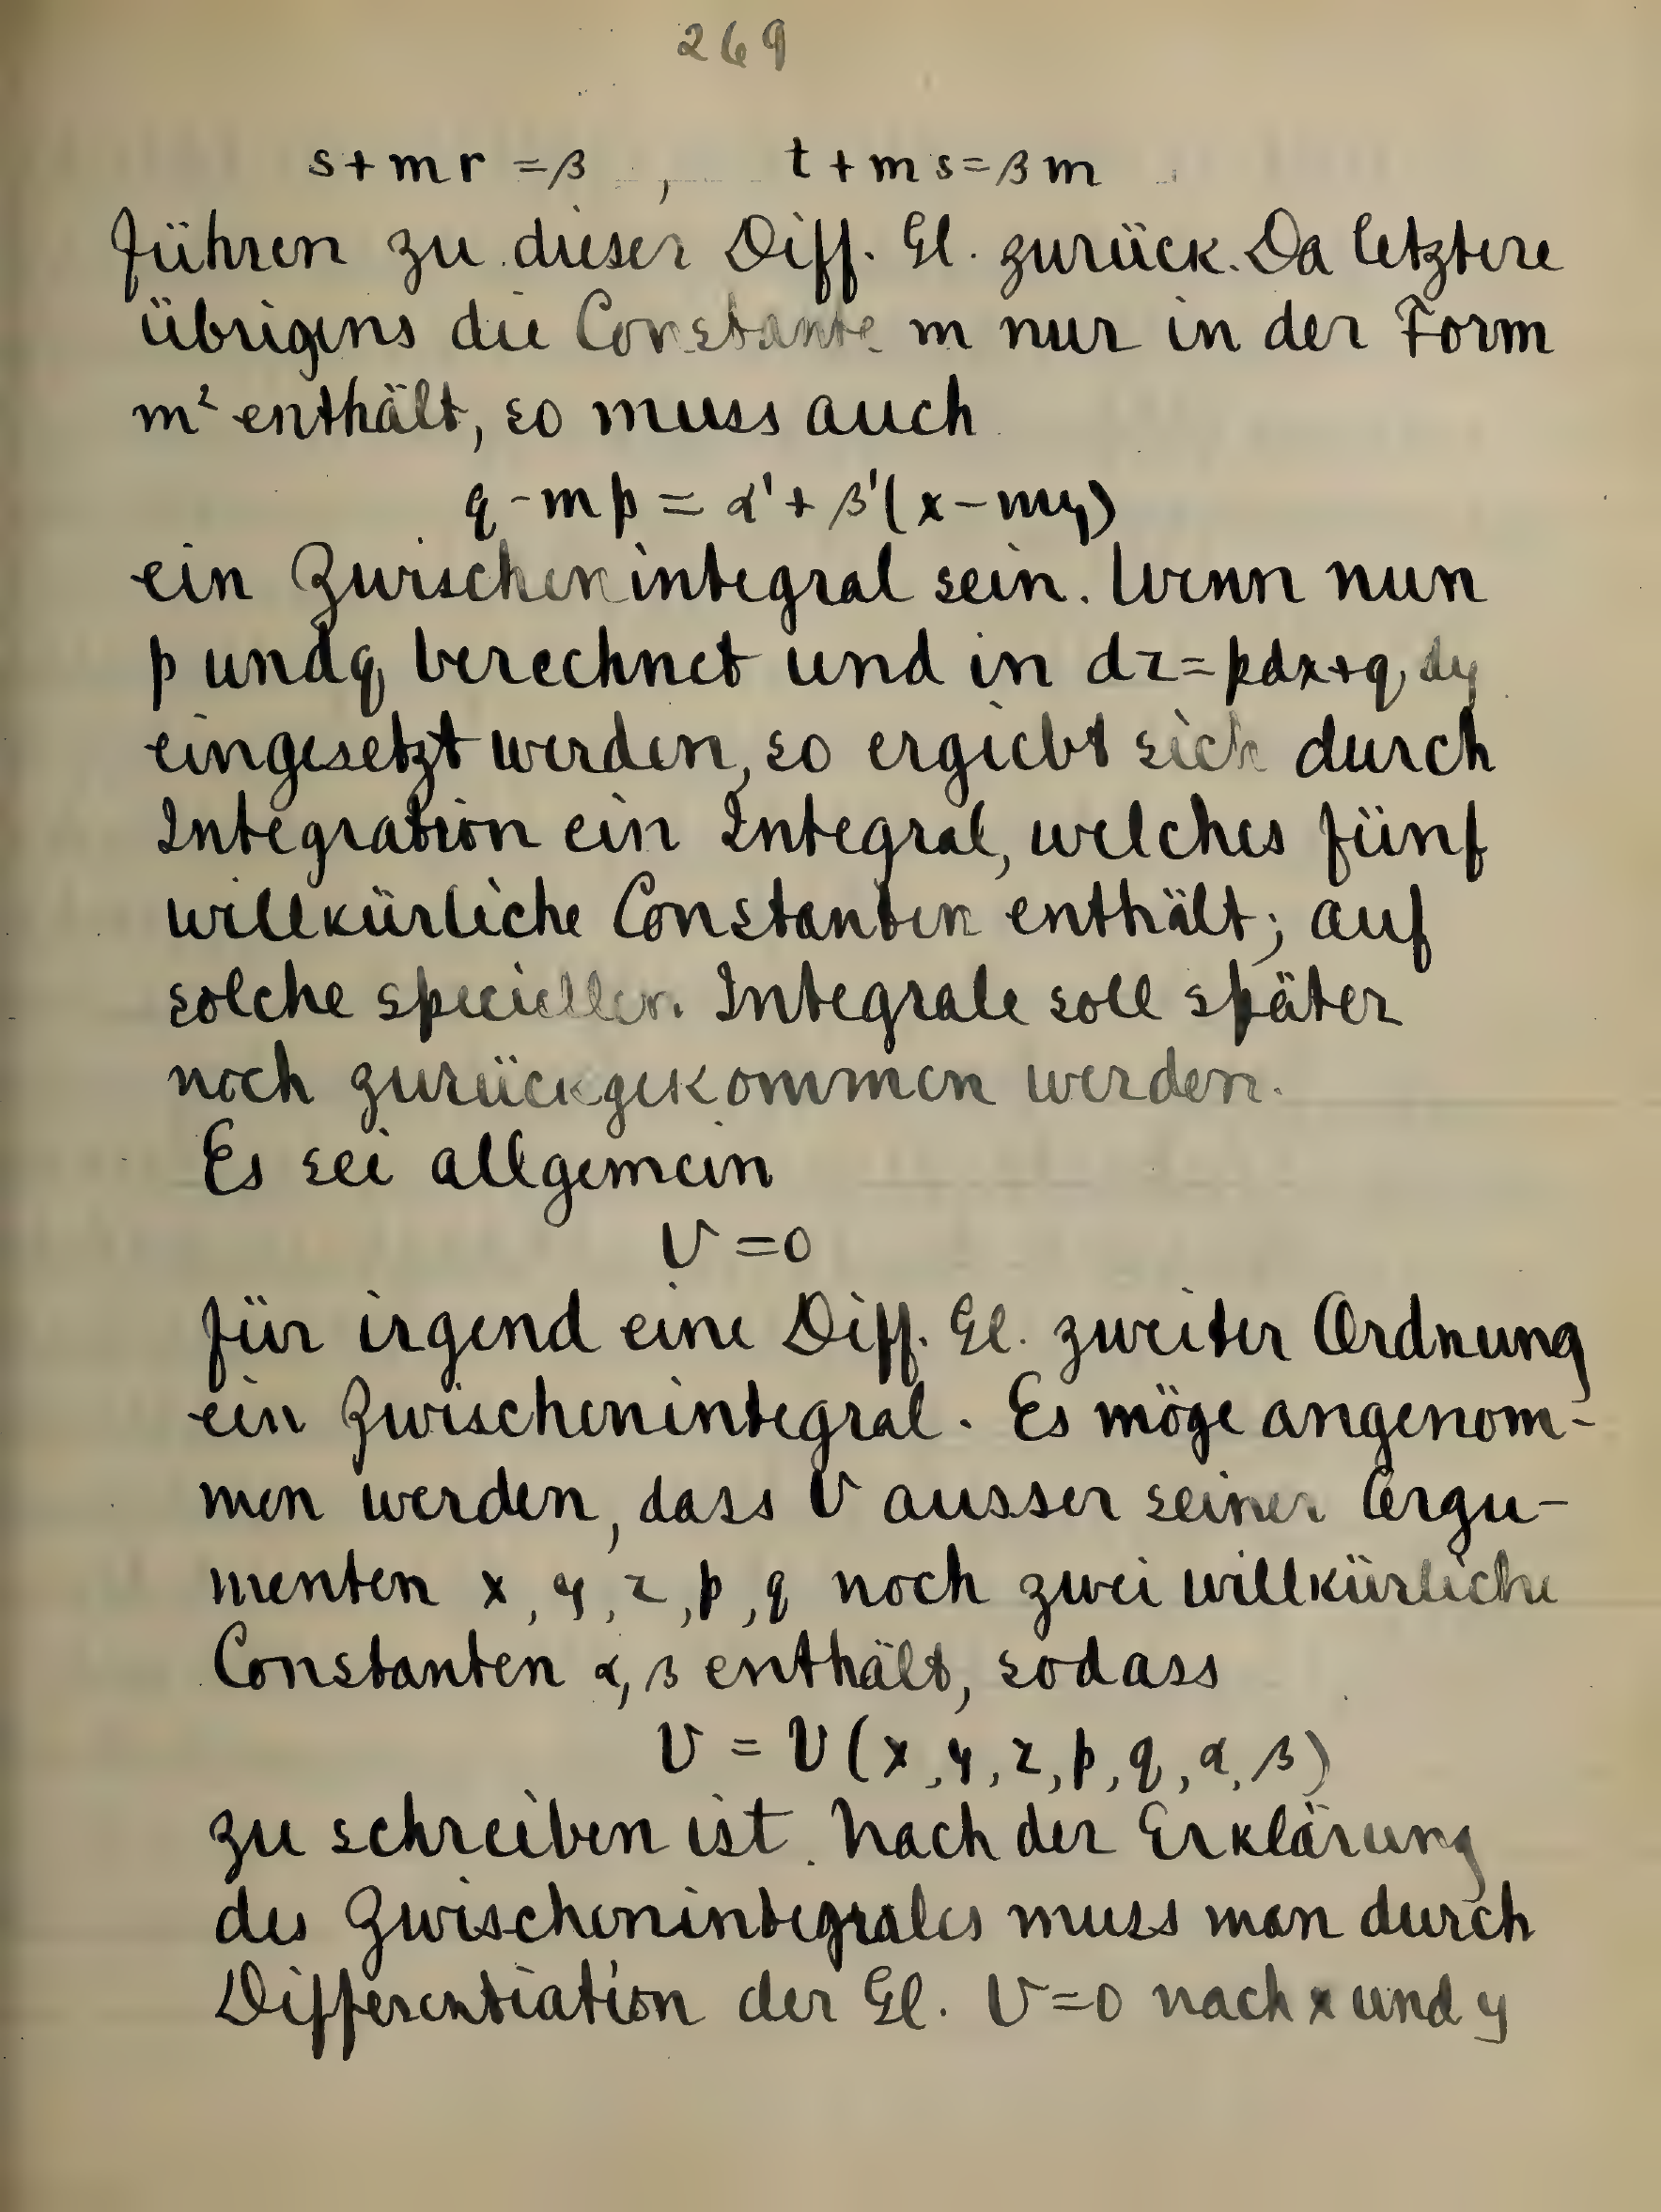 269
s + m r = β , t + m s = β m
führen zu dieser Diff. Gl. zurück. Da letztere
übrigens die Constante m nur in der Form
m² enthält, so muss auch
q - m p = α' + β'(x - my)
ein Zwischenintegral sein. Wenn nun
p und q berechnet und in dz = pdx + q dy
eingesetzt werden, so ergiebt sich durch
Integration ein Integral, welches fünf
willkürliche Constanten enthält; auf
solche speciellen Integrale soll später
noch zurückgekommen werden.
Es sei allgemein
V = 0
für irgend eine Diff. Gl. zweiter Ordnung
ein Zwischenintegral. Es möge angenom-
men werden, dass V ausser seinen Argu-
menten x, y, z, p, q noch zwei willkürliche
Constanten α, β enthält, sodass
V = V (x, y, z, p, q, α, β)
zu schreiben ist. Nach der Erklärung
des Zwischenintegrales muss man durch
Differentiation der Gl. V = 0 nach x und y